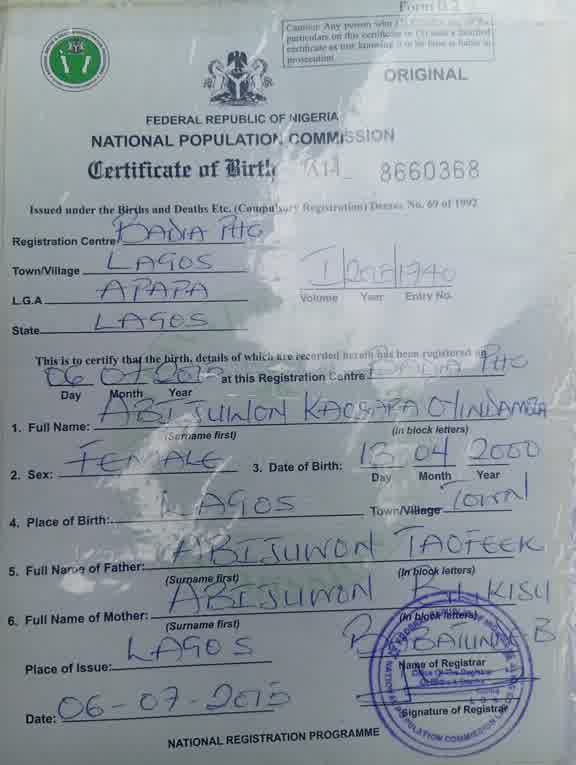 Form B.2
Caution: Any person who
particulars on this certificate or (2) uses a falsified
certificate as true knowing it to be false is liable to
prosecution
ORIGINAL
FEDERAL REPUBLIC OF NIGERIA
NATIONAL POPULATION COMMISSION
Certificate of Birth 8660368
Issued under the Births and Deaths Etc. (Compulsory Registration) Decree No. 69 of 1992
Registration Centre BADIA PHC
Town/Village LAGOS
L.G.A APAPA
Volume Year Entry No.
State LAGOS
This is to certify that the birth, details of which are recorded herein has been registered on
06 07 2015 at this Registration Centre BADIA PHC
Day Month Year
1. Full Name: ABIJUWON
(Surname first) (in block letters)
2. Sex: FEMALE 3. Date of Birth: 13 04 2000
Day Month Year
4. Place of Birth: LAGOS Town/Village Town
5. Full Name of Father: ABIJUWON TAOFEEK
(Surname first) (In block letters)
6. Full Name of Mother: ABIJUWON
(Surname first) (In block letters)
Place of Issue: LAGOS
Name of Registrar
Date: 06-07-2015
Signature of Registrar
NATIONAL REGISTRATION PROGRAMME